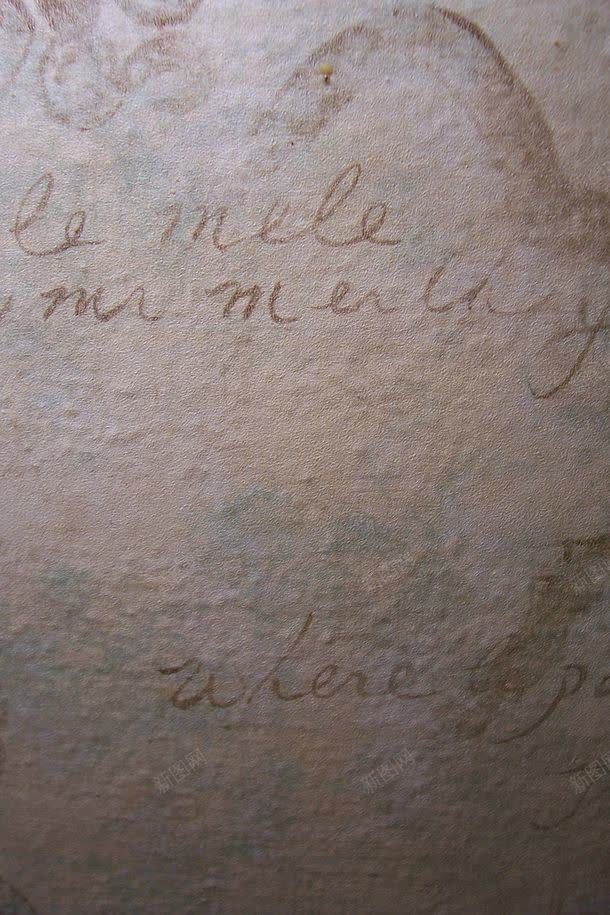 le mele
mr merthy
where
新图网
新图网 新图网 新图网